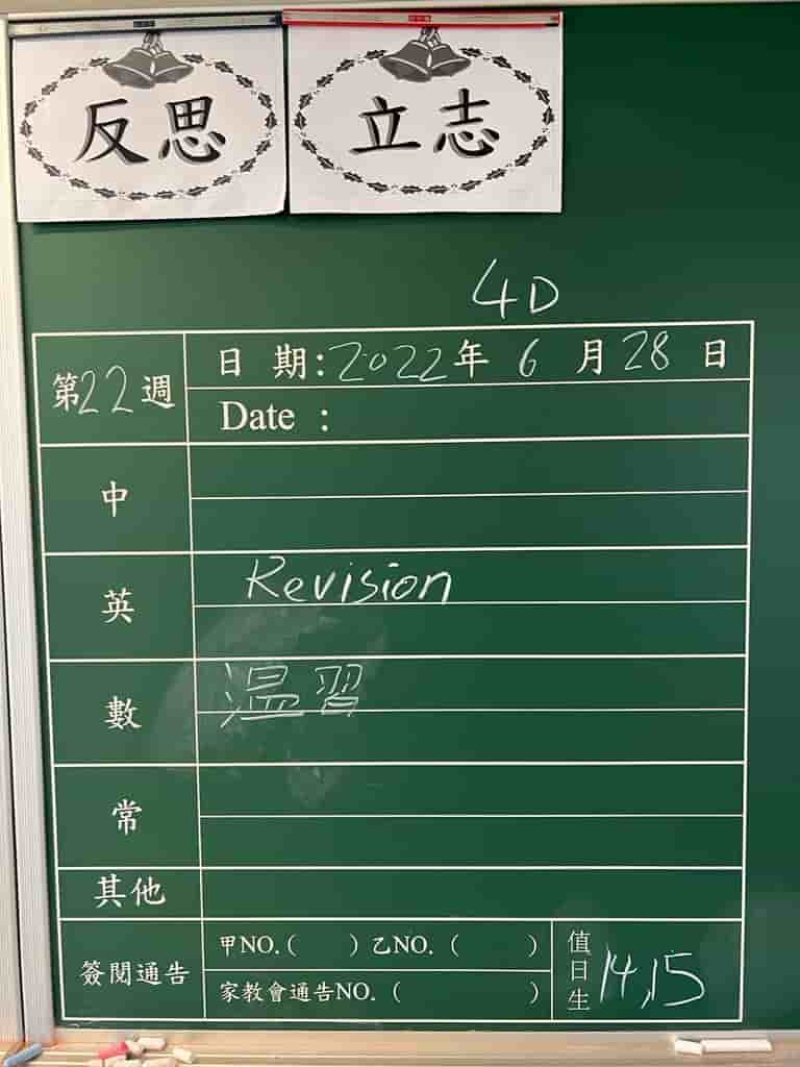 反思
立志
4D
第22週
日 期:2022年 6 月 28 日
Date :
中
英 Revision
數 温習
常
其他
簽閱通告
甲NO.( )乙NO. ( )
家教會通告NO. ( )
值日生 14,15